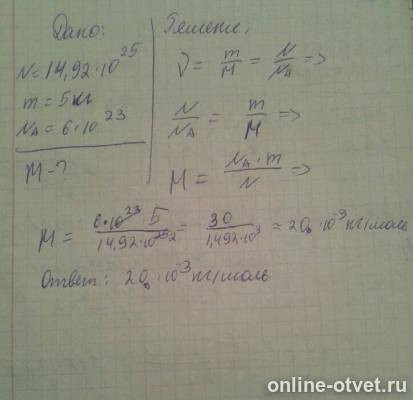 Дано:
N=14,92·10²⁵
m=5кг
N_A=6·10²³
M-?
Решение.
ν = m/M = N/N_A =>
N/N_A = m/M =>
M = N_A·m/N =>
M = 6·10²³·5/14,92·10²⁵ = 30/1,492·10³ ≈ 20·10⁻³кг/моль
Ответ: 20·10⁻³кг/моль
online-otvet.ru